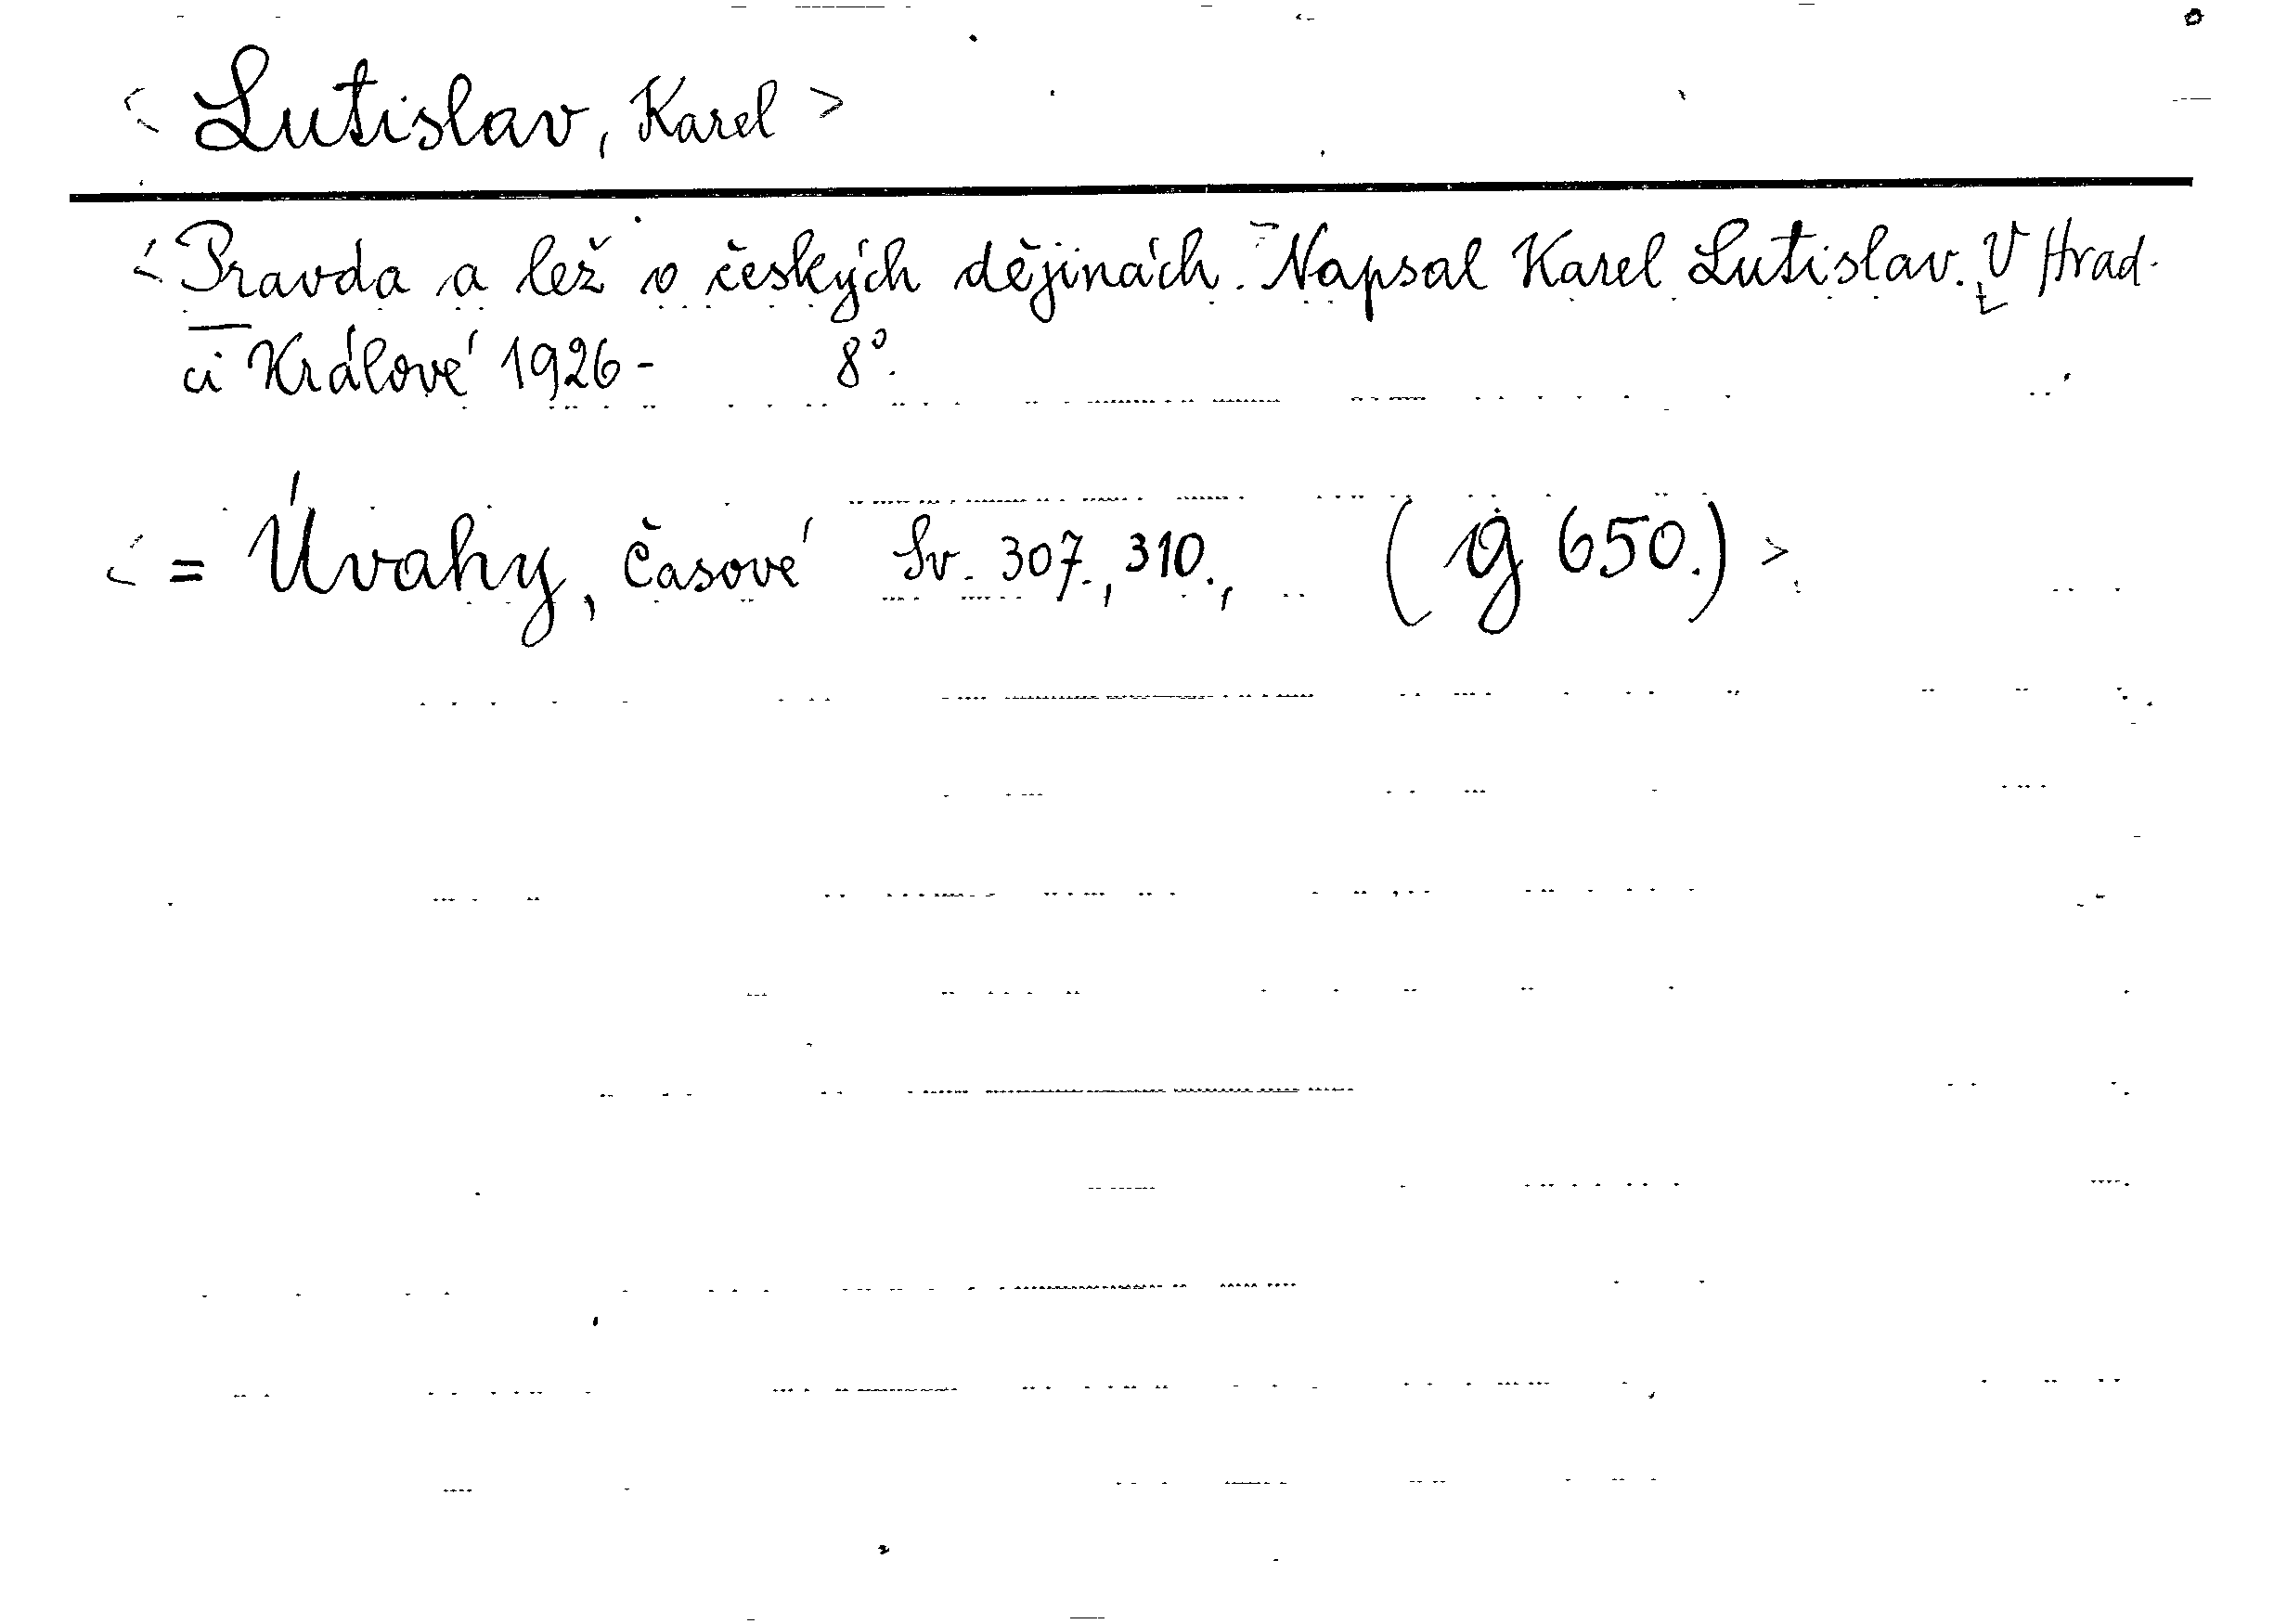 < Lutislav, Karel >
< Pravda a lež o českých dějinách. Napsal Karel Lutislav. V Hrad-
ci Králové 1926- 8°.
< = Úvahy, časové Sv. 307., 310., (g 650.) >